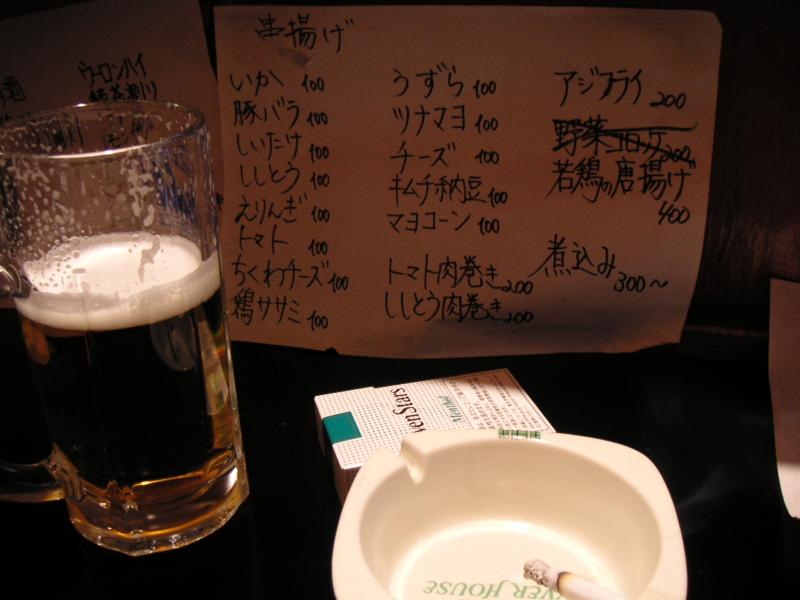 ウーロンハイ
緑茶割り
串揚げ
いか 100
豚バラ 100
しいたけ 100
ししとう 100
えりんぎ 100
トマト 100
ちくわチーズ 100
鶏ササミ 100
うずら 100
ツナマヨ 100
チーズ 100
キムチ納豆 100
マヨコーン 100
トマト肉巻き 200
ししとう肉巻き 200
アジフライ 200
野菜コロッケ 200
若鶏の唐揚げ
400
煮込み
300〜
venStars
Menthol
VER HOUSE